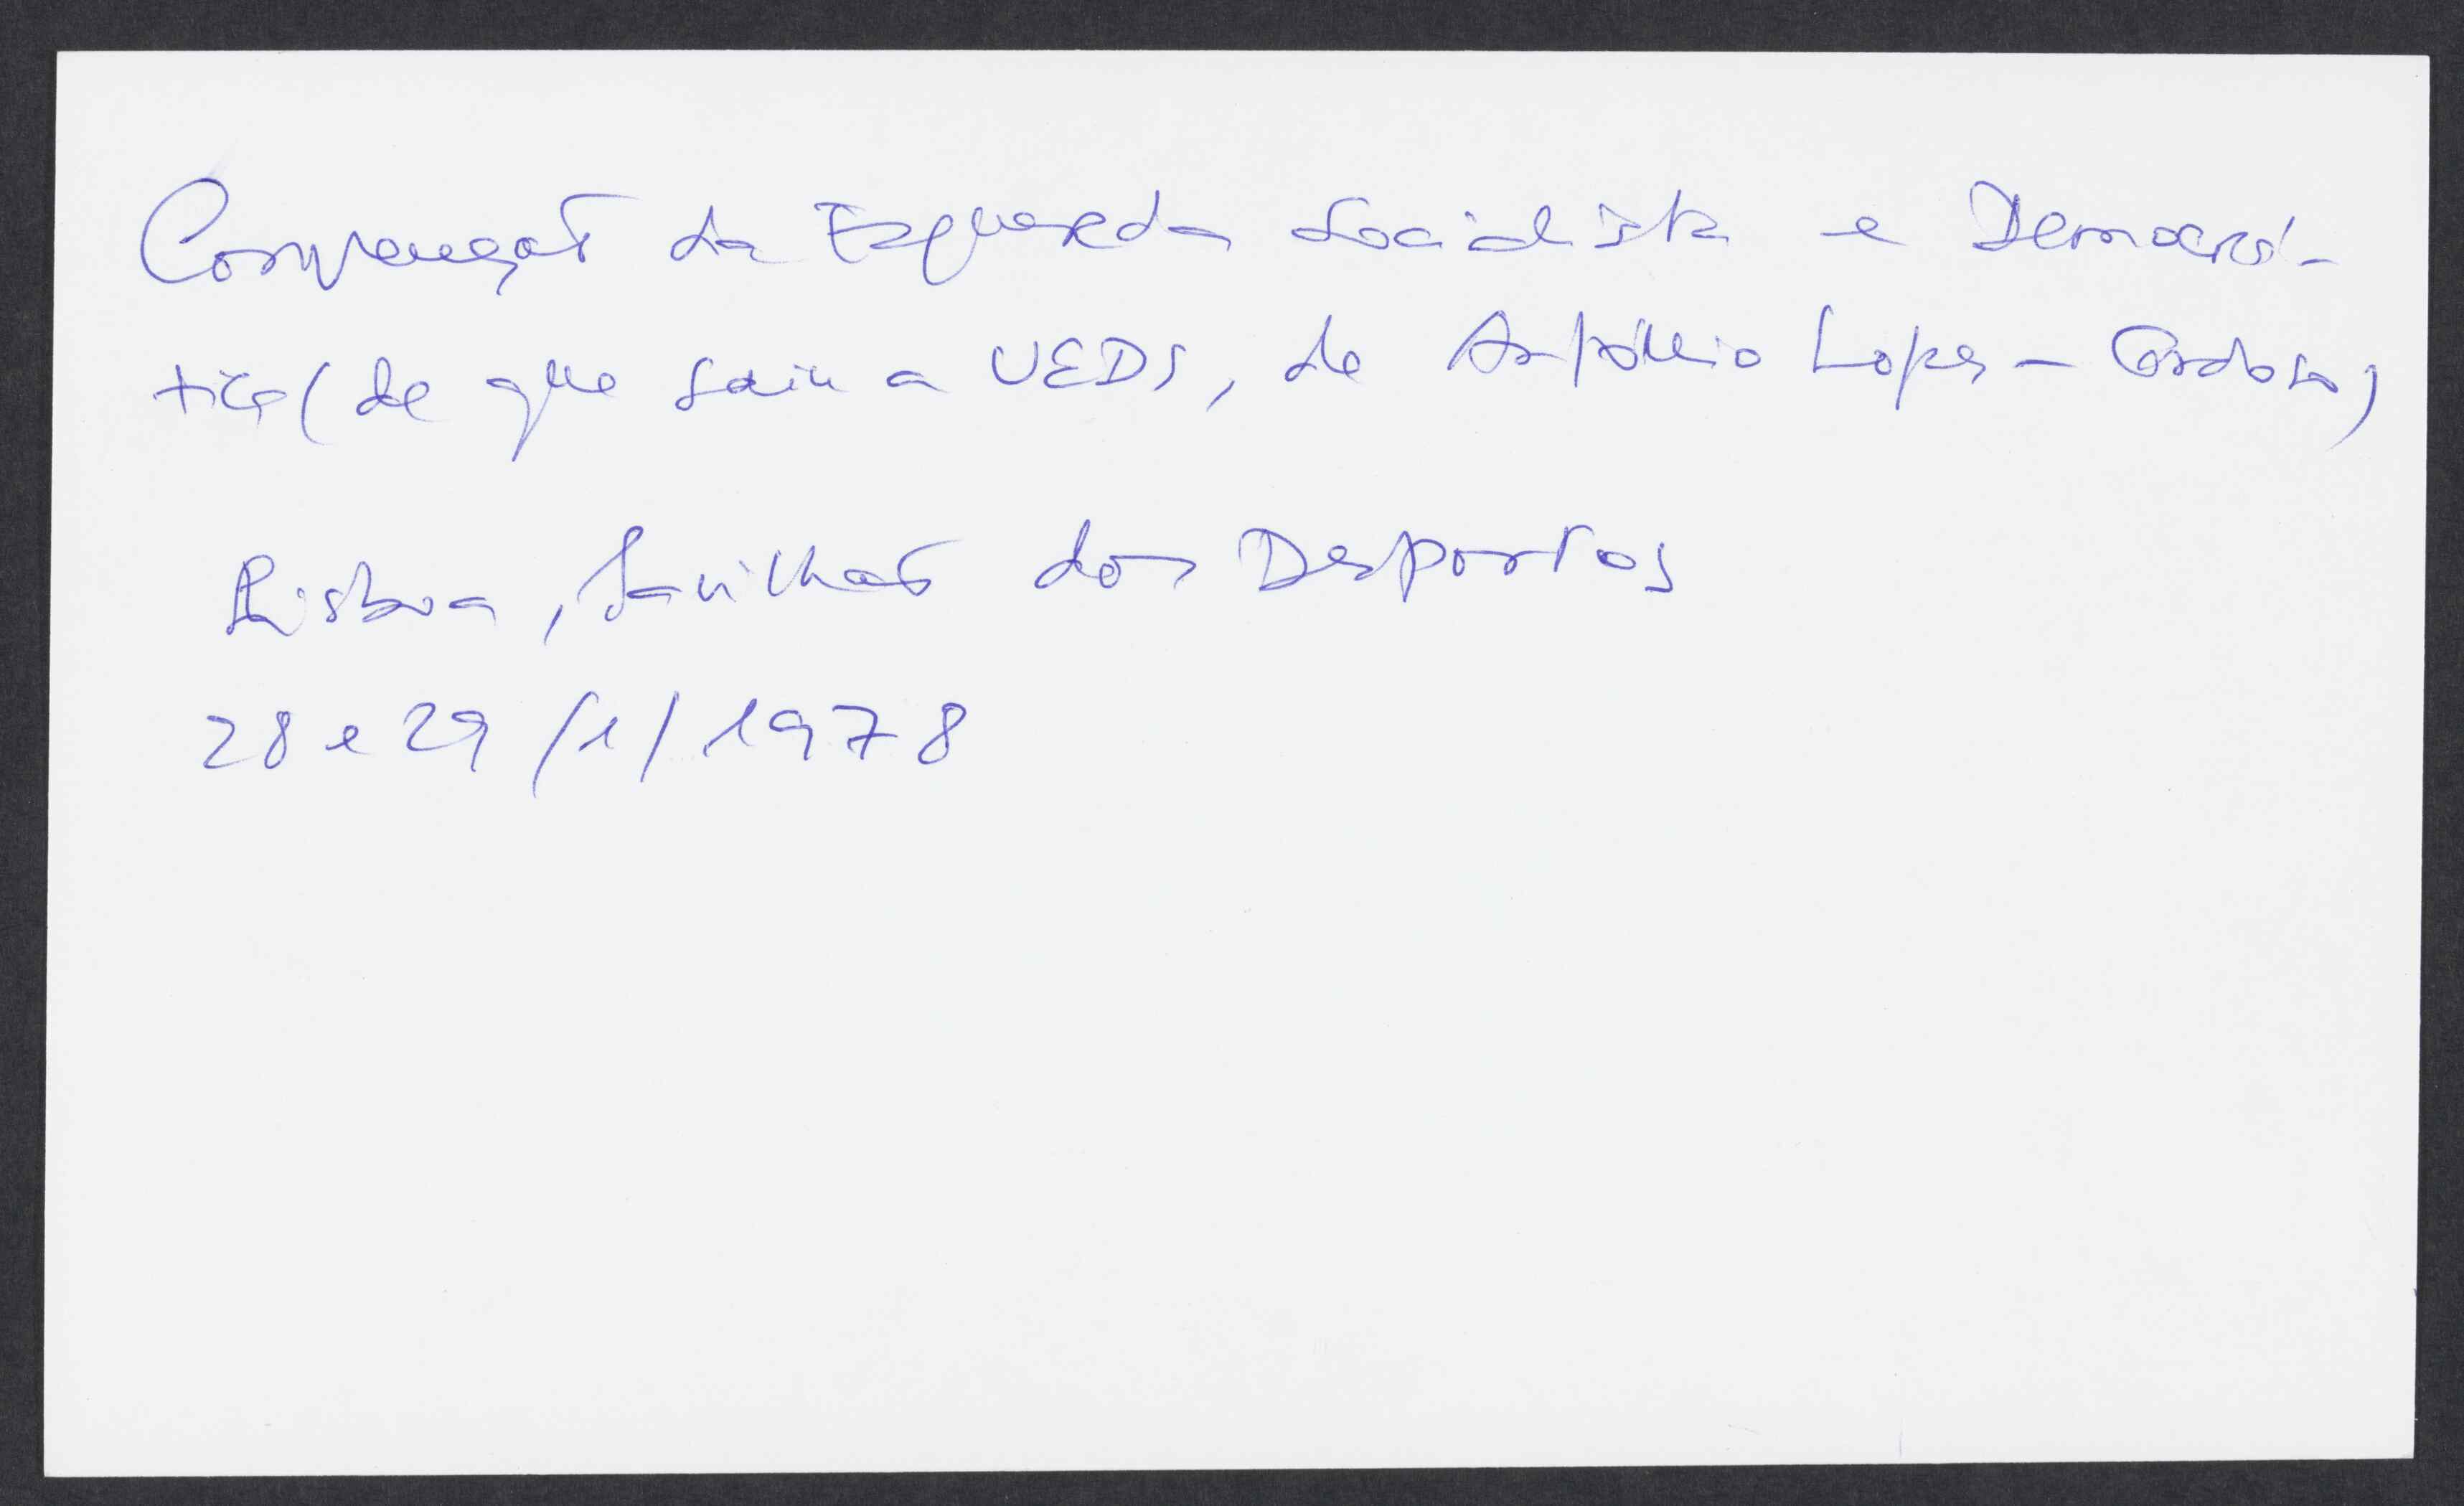 Convenção da Esquerda Socialista e Democrá-
tica (de que saiu a UEDS, de António Lopes-Cardoso)
Lisboa, Pavilhão dos Desportos
28 e 29/1/1978